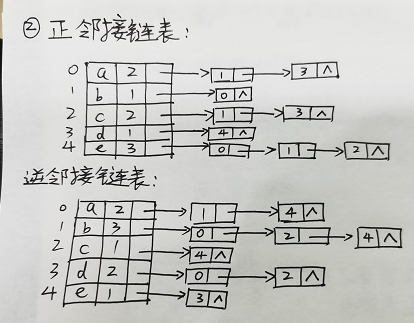 ② 正邻接链表：
0 a 2 → 1 → 3 ∧
1 b 1 → 0 ∧
2 c 2 → 1 → 3 ∧
3 d 1 → 4 ∧
4 e 3 → 0 → 1 → 2 ∧
逆邻接链表：
0 a 2 → 1 → 4 ∧
1 b 3 → 0 → 2 → 4 ∧
2 c 1 → 4 ∧
3 d 2 → 0 → 2 ∧
4 e 1 → 3 ∧